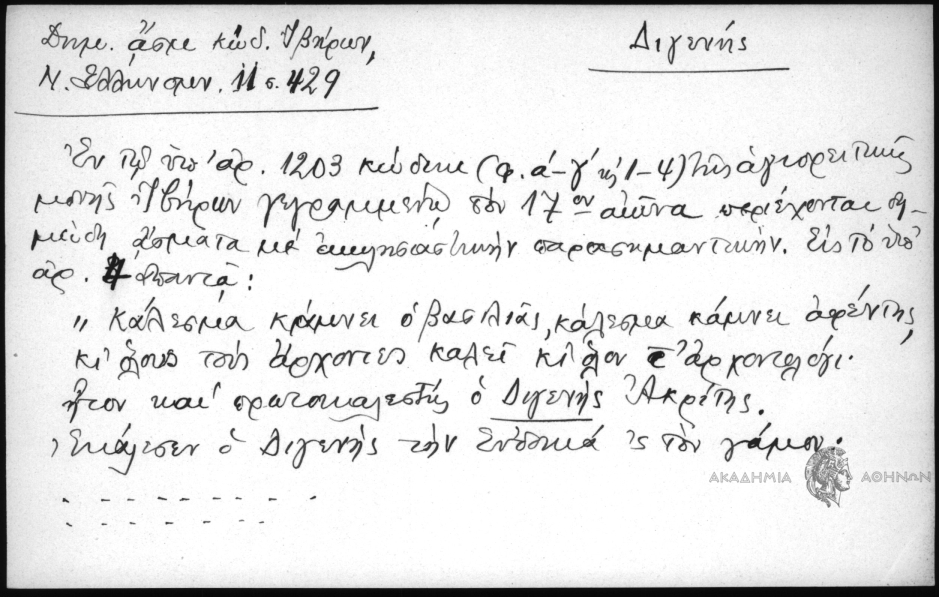 Δημ. ἄσμ. κώδ. Ἰβήρων,
Διγενής
Ν. Ἑλληνομν. 11 σ. 429
Ἐν τῷ ὑπ' ἀρ. 1203 κώδικι (φ. α΄-γ΄ κ΄ 1-4) τῆς ἁγιορειτικῆς
μονῆς Ἰβήρων γεγραμμένῳ τὸν 17ον αἰῶνα περιέχονται δη-
μώδη ᾄσματα μὲ ἐκκλησιαστικὴν παρασημαντικήν. Εἰς τὸ ὑπ'
ἀρ. ἀπαντᾷ:
„ Κάλεσμα κάμνει ὁ βασιλιάς, κάλεσμα κάμνει ἀφέντης,
κι' ὅλους τοὺς ἄρχοντες καλεῖ κι' ὅλον τ' ἀρχοντολόγι.
ἦτον καὶ πρωτοκαλεστὴς ὁ Διγενὴς Ἀκρίτης.
Ἐκάλεσεν ὁ Διγενὴς τὴν 'ς τὸν γάμον.
ΑΚΑΔΗΜΙΑ ΑΘΗΝΩΝ